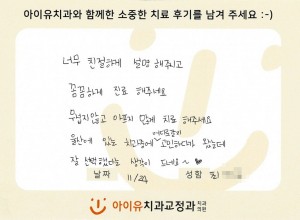 아이유치과와 함께한 소중한 치료 후기를 남겨 주세요 :-)
너무 친절하게 설명 해주시고
꼼꼼하게 진료 해주네요
무섭지않고 아프지 않게 치료 해주세요
어디로갈까
울산에 있는 치과중에 고민하다가 왔는데
잘 선택했다는 생각이 드네요~ ♥
날짜 11/24 성함
아이유치과교정과 치과
의원